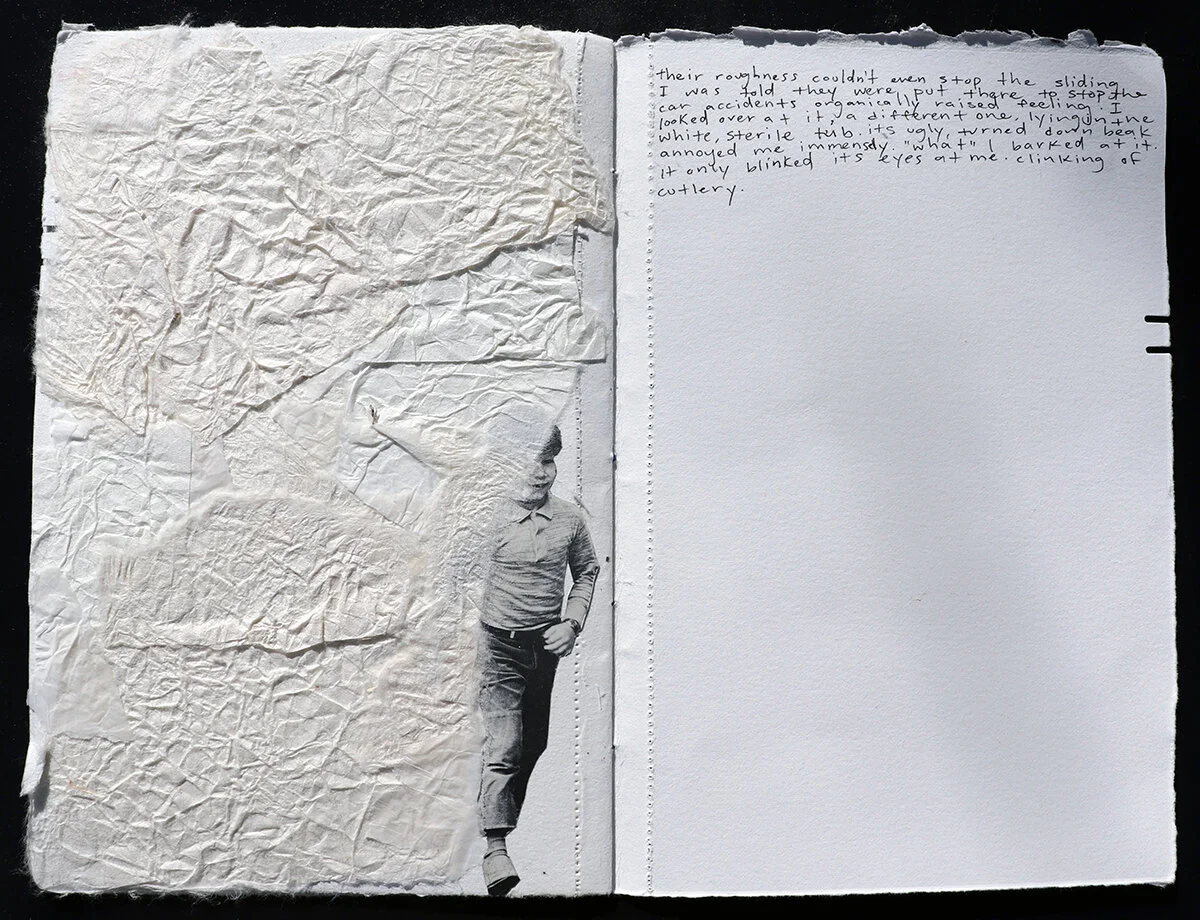 their roughness couldn't even stop the sliding
I was told they were put there to stop the
car accidents organically raised feeling. I
looked over at it, a different one, lying in the
white, sterile tub. its ugly, turned down beak
annoyed me immensly. "what" I barked at it.
it only blinked its eyes at me. clinking of
cutlery.